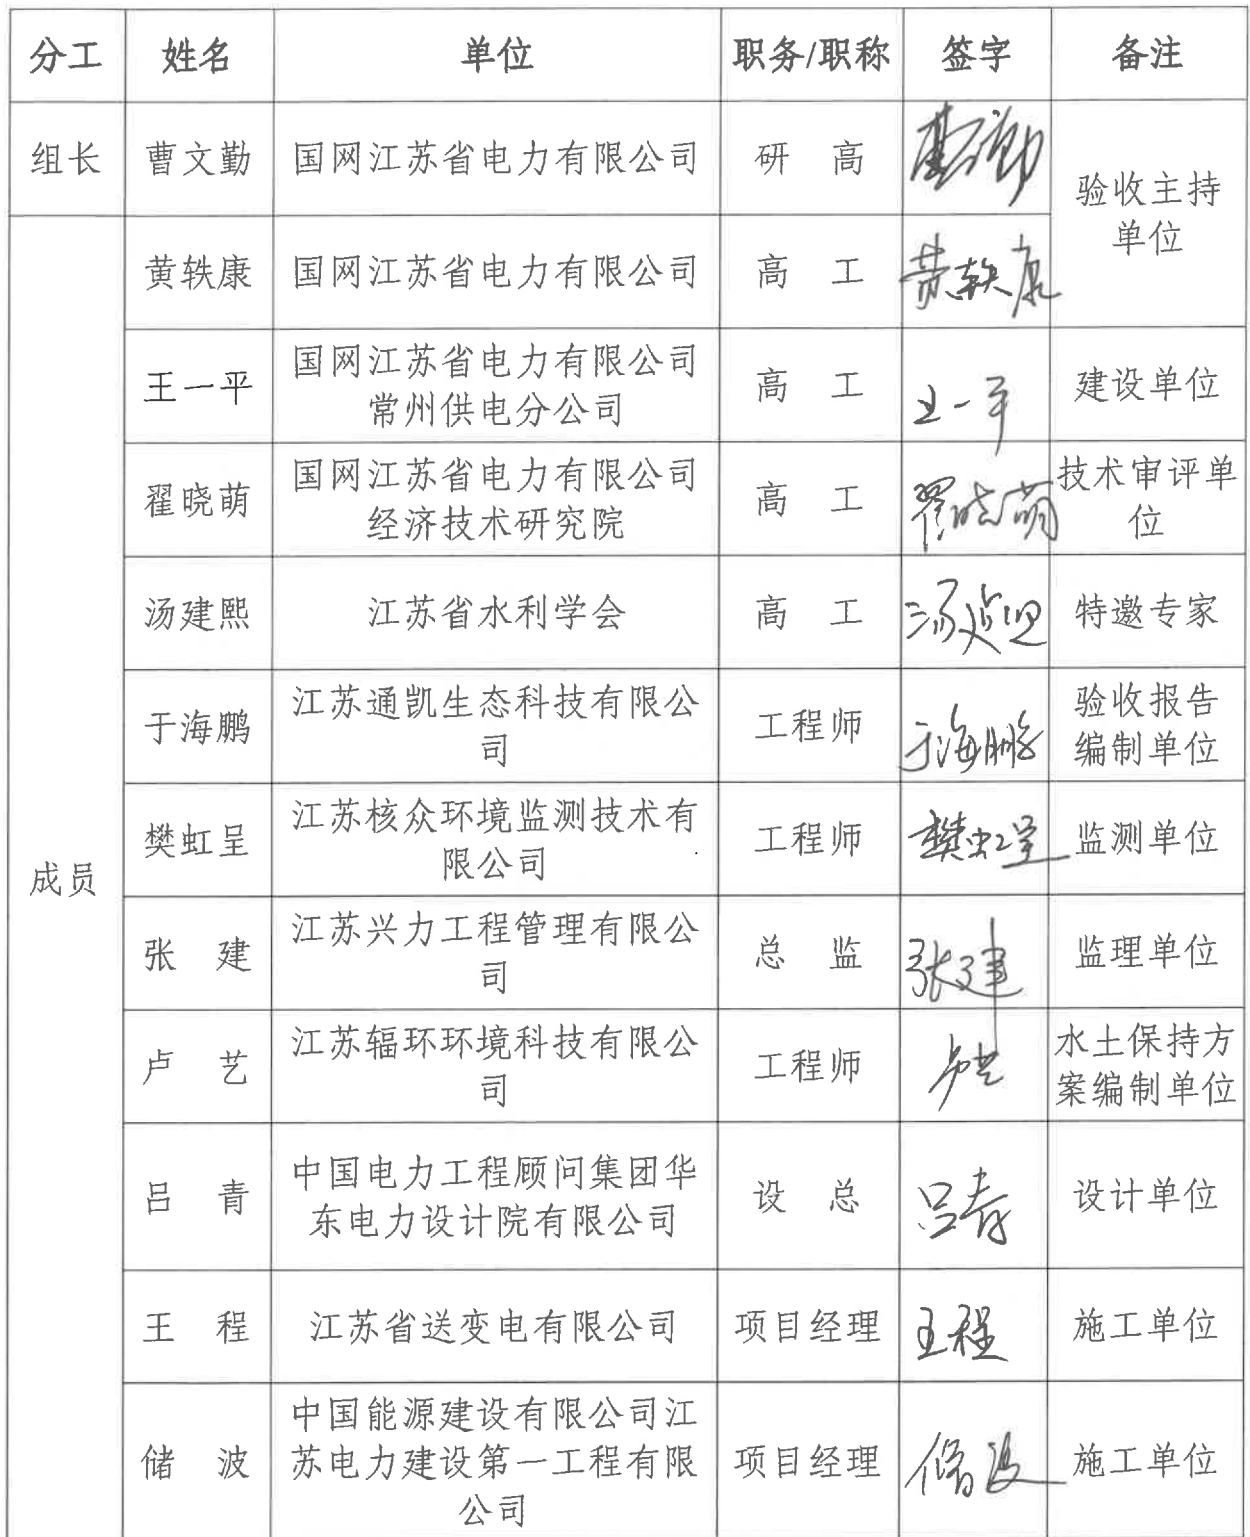 分工 姓名 单位 职务/职称 签字 备注
组长 曹文勤 国网江苏省电力有限公司 研 高
验收主持
单位
成员
黄轶康 国网江苏省电力有限公司 高 工 黄轶康
王一平 国网江苏省电力有限公司
常州供电分公司 高 工 王一平 建设单位
翟晓萌 国网江苏省电力有限公司
经济技术研究院 高 工 翟晓萌 技术审评单
位
汤建熙 江苏省水利学会 高 工 汤建熙 特邀专家
于海鹏 江苏通凯生态科技有限公
司 工程师 于海鹏 验收报告
编制单位
樊虹呈 江苏核众环境监测技术有
限公司 工程师 樊虹呈 监测单位
张 建 江苏兴力工程管理有限公
司 总 监 张建 监理单位
卢 艺 江苏辐环环境科技有限公
司 工程师 卢艺 水土保持方
案编制单位
吕 青 中国电力工程顾问集团华
东电力设计院有限公司 设 总 吕青 设计单位
王 程 江苏省送变电有限公司 项目经理 王程 施工单位
储 波 中国能源建设有限公司江
苏电力建设第一工程有限
公司 项目经理 储波 施工单位